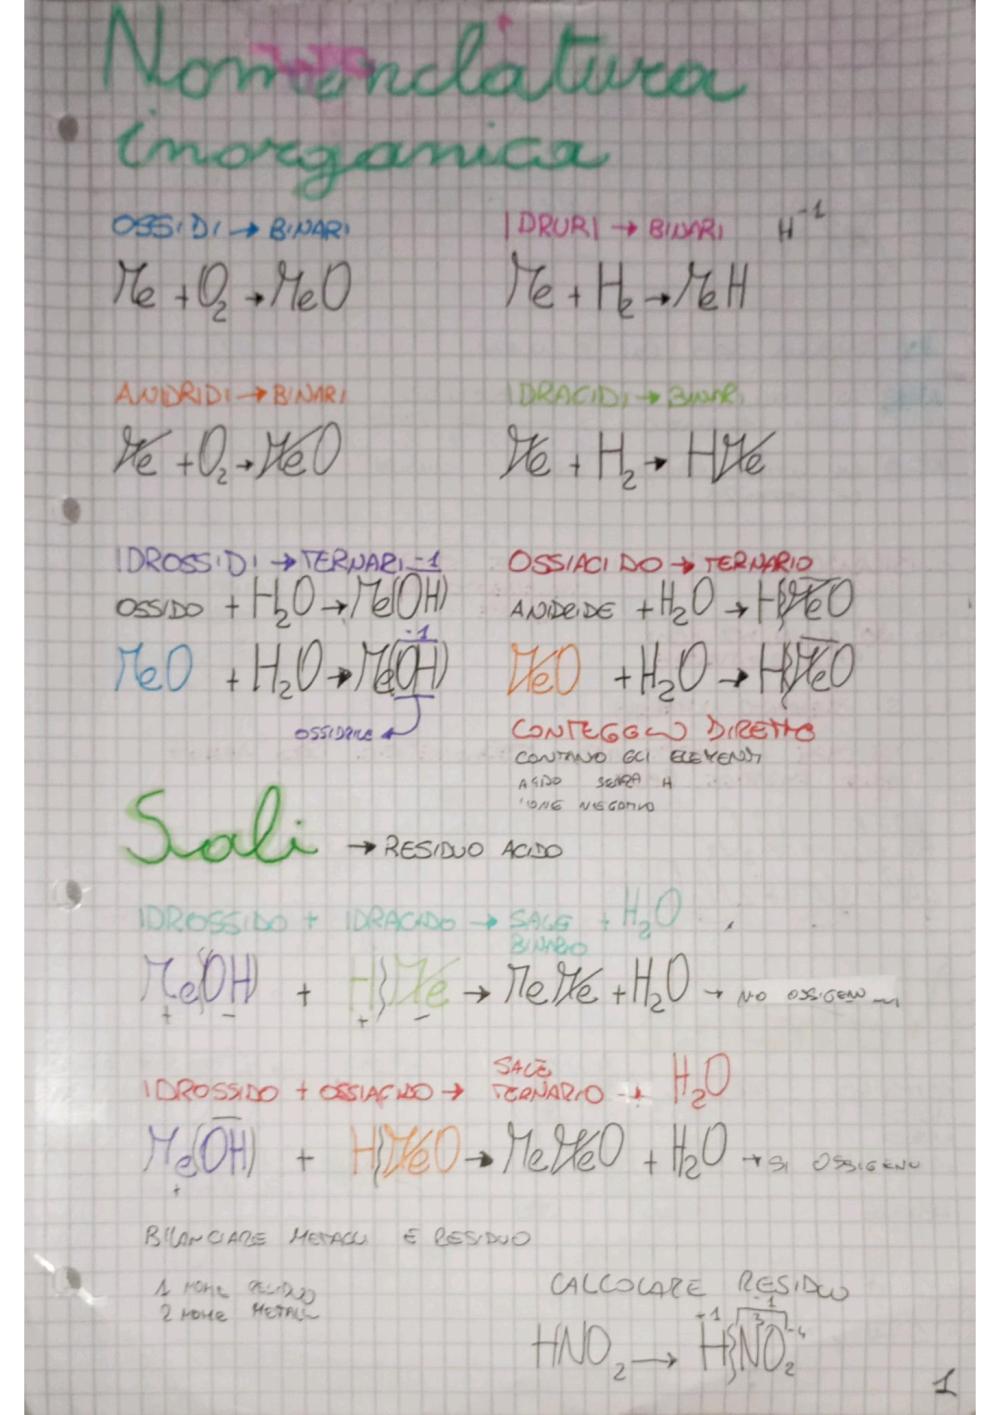 Nomenclatura
inorganica
OSSIDI → BINARI
Me + O2 → MeO
IDRURI → BINARI H-1
Me + H2 → MeH
ANIDRIDI → BINARI
M̸e + O2 → M̸eO
IDRACIDI → BINARI
M̸e + H2 → HM̸e
IDROSSIDI → TERNARI -1
OSSIDO + H2O → Me(OH)
MeO + H2O → Me(OH) -1
OSSIDRILE
OSSIACIDO → TERNARIO
ANIDRIDE + H2O → H}M̸eO
M̸eO + H2O → H}M̸eO
CONTEGGIO DIRETTO
CONTANO GLI ELEMENTI
ACIDO SENZA H
IONE NEGATIVO
Sali → RESIDUO ACIDO
IDROSSIDO + IDRACIDO → SALE BINARIO + H2O
Me(OH) + H}M̸e → MeM̸e + H2O → NO OSSIGENO
+ - + -
IDROSSIDO + OSSIACIDO → SALE TERNARIO + H2O
Me(OH) + H}M̸eO → MeM̸eO + H2O → SI OSSIGENO
+
BILANCIARE METALLI E RESIDUO
1 NOME RESIDUO
2 NOME METALL
CALCOLARE RESIDUO
-1
+1 3 -4
HNO2 → H}NO2
1